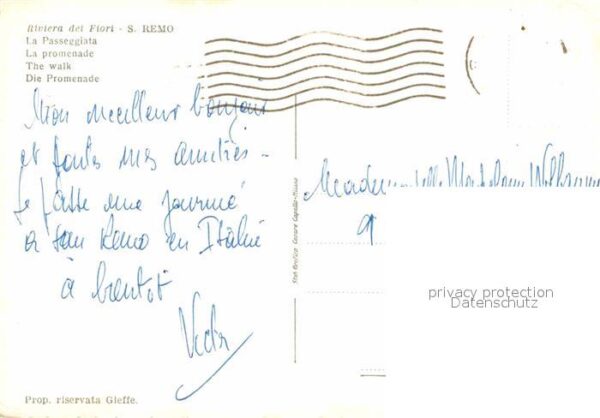 Riviera dei Fiori - S. REMO
La Passeggiata
La promenade
The walk
Die Promenade
Mon meilleur bonjour
et toutes mes amitiés -
Je passe une journée
a San Remo en Italie
à bientôt
Mademoiselle
Stab. Grafico Cesare Capello - Milano
privacy protection
Datenschutz
Prop. riservata Gieffe.